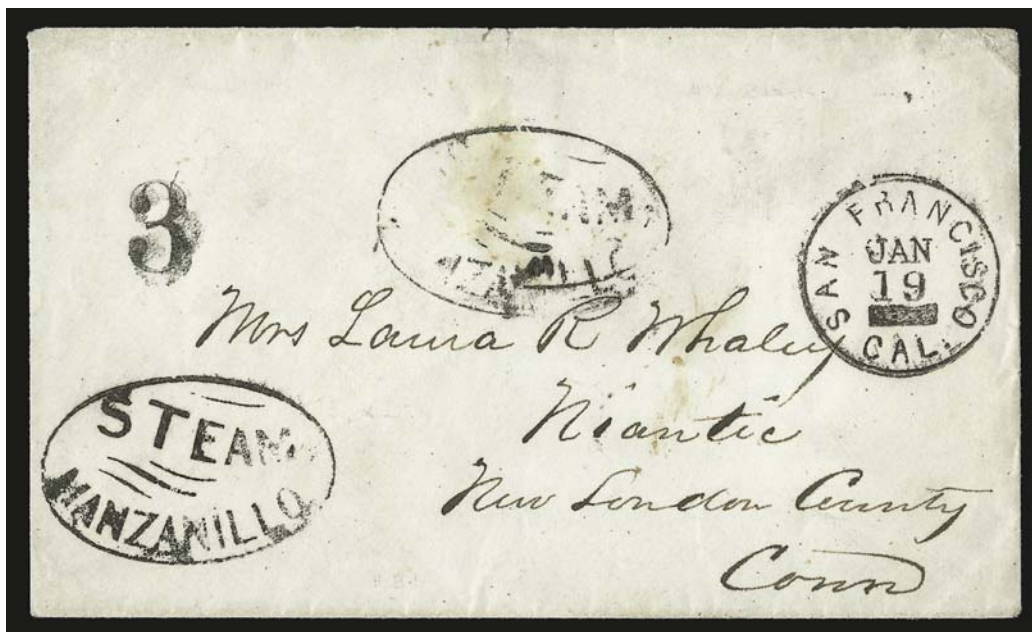 3
SAN FRANCISCO
JAN
19
CAL.
Mrs Laura R Whaley
Niantic
New London County
Conn
STEAM
MANZANILLO